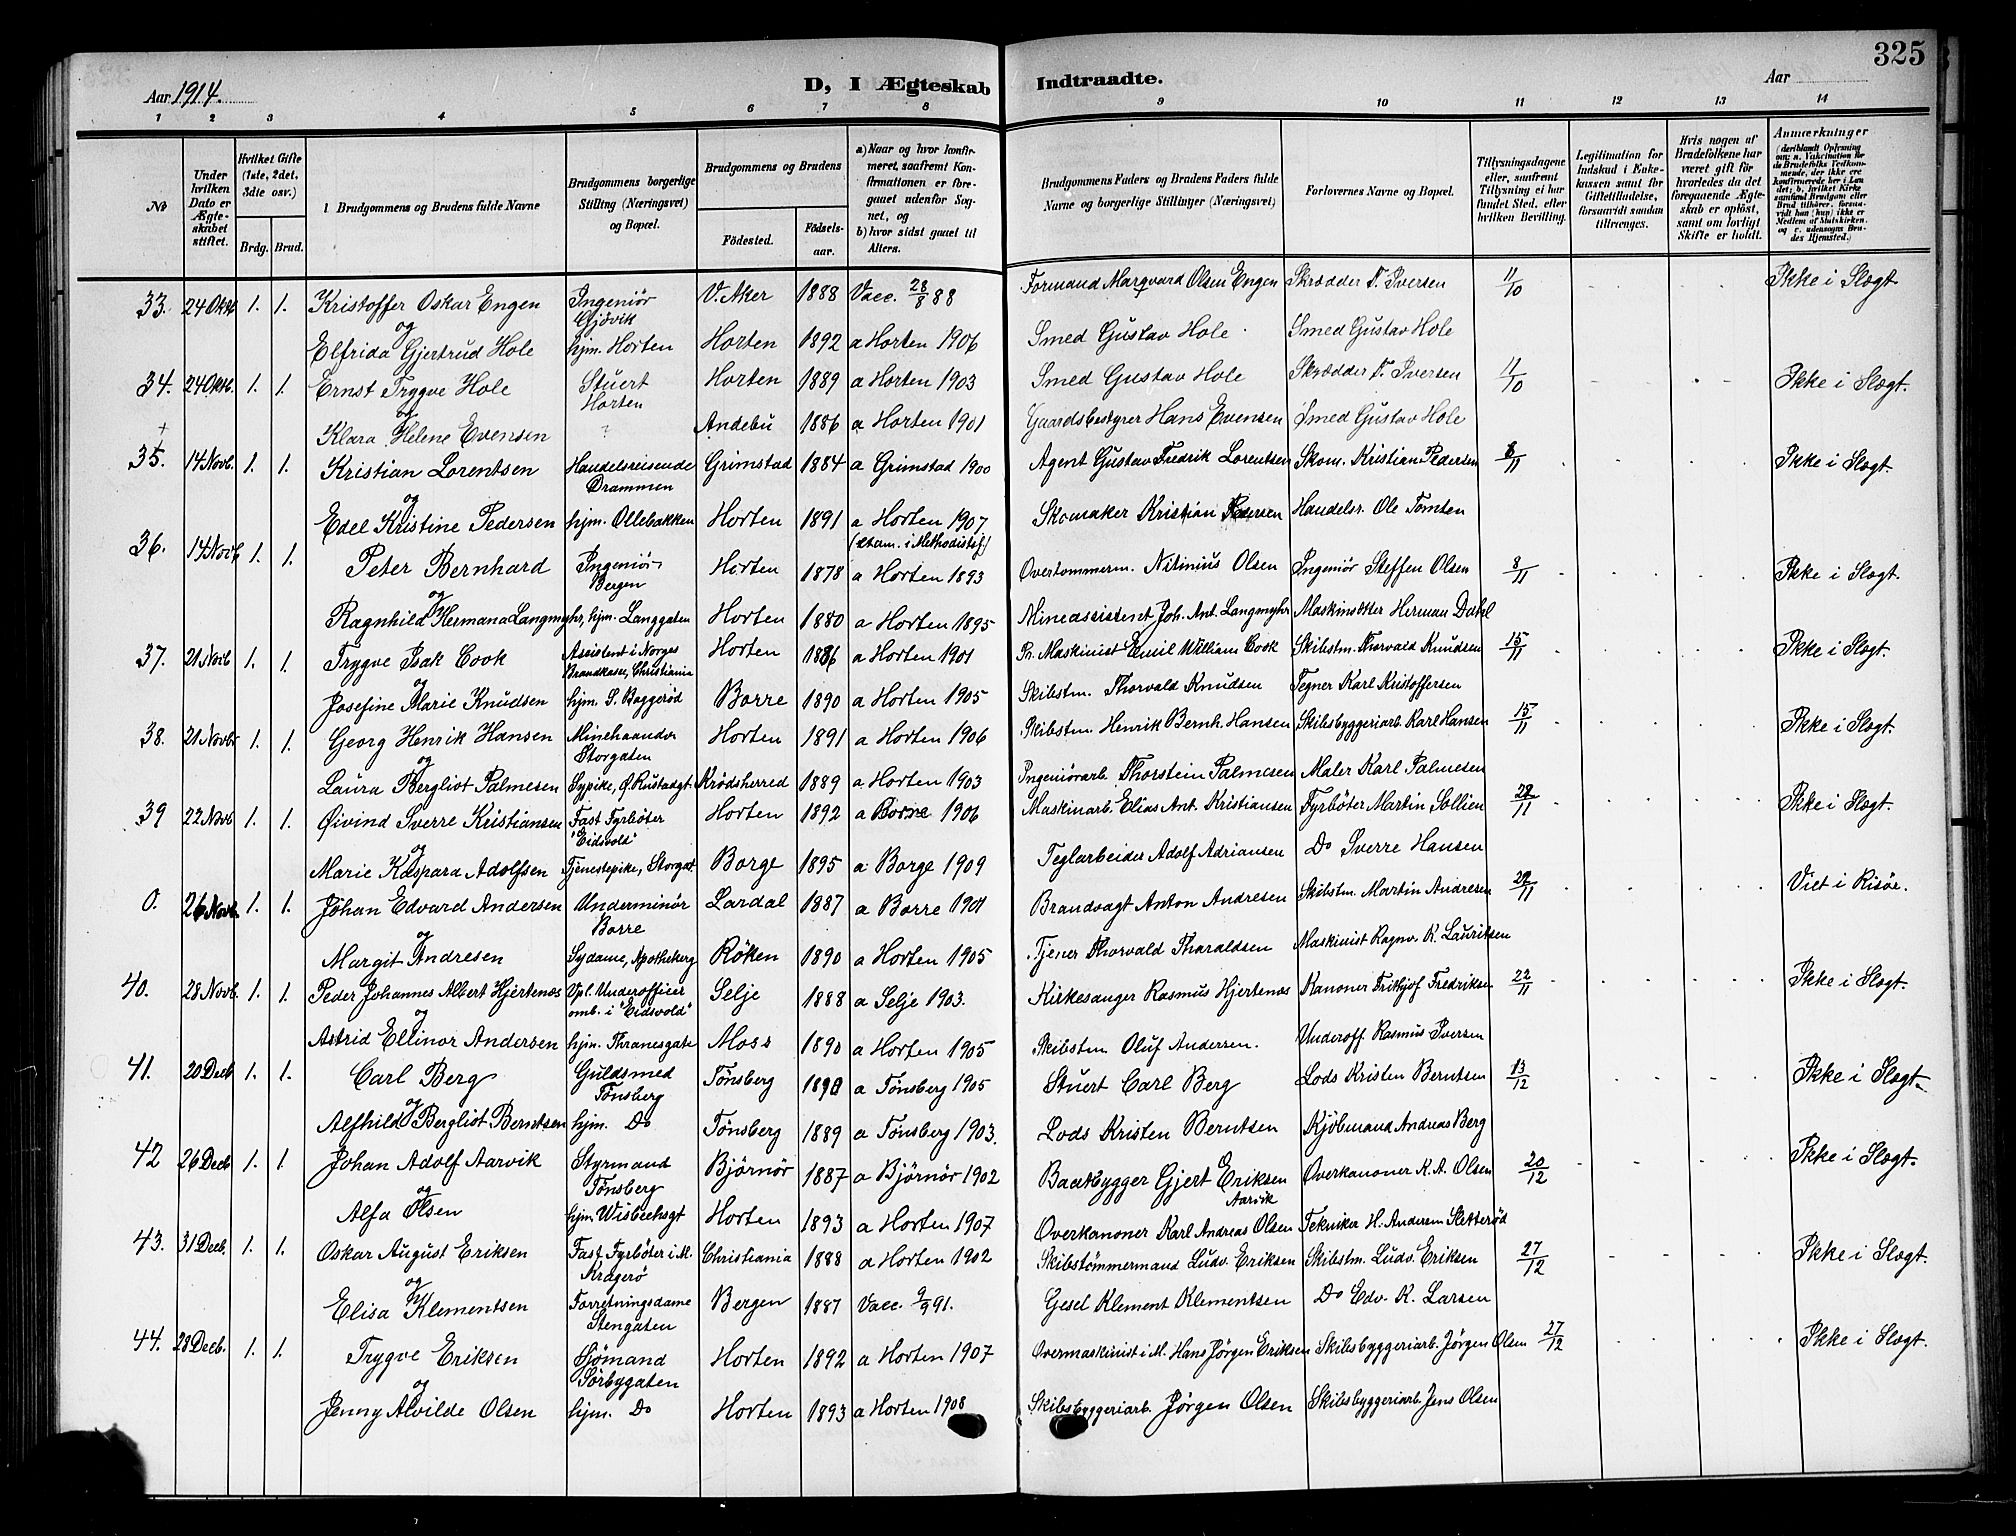 325
Aar 1914.
D, I Ægteskab Indtraadte.
Aar
1 2 3 4 5 6 7 8 9 10 11 12 13 14
No
Under hvilken Dato er Ægteskabet stiftet.
Hvilket Gifte (1ste, 2det, 3die osv.)
Brdg. Brud.
Brudgommens og Brudens fulde Navne
Brudgommens borgerlige Stilling (Næringsvei) og Bopæl.
Brudgommens og Brudens
Födested. Födselsaar.
a) Naar og hvor konfirmeret, saafremt Konfirmationen er foregaaet udenfor Sognet, og
b) hvor sidst gaaet til Alters.
Brudgommens Faders og Brudens Faders fulde Navne og borgerlige Stillinger (Næringsvei)
Forlovernes Navne og Bopæl.
Tillysningsdagene eller, saafremt Tillysning ei har fundet Sted, efter hvilken Bevilling.
Legitimation for Indskud i Enkekassen samt for Giftetilladelse, forsaavidt saadan tiltrænges.
Hvis nogen af Brudefolkene har været gift för hvorledes da det foregaaende Ægteskab er oplöst, samt om lovligt Skifte er holdt.
Anmærkninger (deriblandt Oplysning om: a. Vakcination for de Brudefolks Vedkommende, der ikke ere konfirmerede her i Landet; b. hvilket Kirkesamfund Brudgom eller Brud tilhörer, forsaavidt han (hun) ikke er Medlem af Statskirken, og c. udensogns Brudes Hjemsted.)
33. 24 Oktb. 1. 1. Kristoffer Oskar Engen Ingeniör Gjövik V. Aker 1888 Vacc. 28/8 88 Formand Marqvard Olsen Engen Skrædder T. Iversen 11/10 Ikke i Slægt.
og
Elfrida Gjertrud Hole hjm. Horten Horten 1892 a Horten 1906 Smed Gustav Hole Smed Gustav Hole
34. 24 Oktb. 1. 1. Ernst Trygve Hole Stuert Horten Horten 1889 a Horten 1903 Smed Gustav Hole Skrædder T. Iversen 11/10 Ikke i Slægt.
og
Klara Helene Evensen ? Andebu 1886 a Horten 1901 Gaardsbestyrer Hans Evensen Smed Gustav Hole
35. 14 Novb. 1. 1. Kristian Lorentsen Handelsreisende Drammen Grimstad 1884 a Grimstad 1900 Agent Gustav Fredrik Lorentsen Skom. Kristian Pedersen 8/11 Ikke i Slægt.
og
Edel Kristine Pedersen hjm. Ollebakken Horten 1891 a Horten 1907 Skomaker Kristian Pedersen Handelsr. Ole Tomten
36. 14 Novb 1. 1. Peter Bernhard Ingeniör Bergen Horten 1878 a Horten 1893 Overtømmerm. Nitinius Olsen Ingeniör Steffen Olsen 8/11 Ikke i Slægt.
og
Ragnhild Hermana Langmyhr, hjm. Langgaten Horten 1880 a Horten 1895 Mineassistent Joh. Ant. Langmyhr Maskinsetter Herman Dahl
37. 21 Novb 1. 1. Trygve Isak Cook Assistent i Norges Brandkasse, Christiania Horten 1886 a Horten 1901 Pr. Maskinist Emil William Cook Skibstm. Thorvald Knudsen 15/11 Ikke i Slægt.
og
Josefine Marie Knudsen hjm. S. Baggerød Borre 1890 a Horten 1905 Skibstm. Thorvald Knudsen Tegner Karl Kristoffersen
38. 21 Novbr 1. 1. Georg Henrik Hansen Minehaandv Storgaten Horten 1891 a Horten 1906 Skibstm. Henrik Bernh. Hansen Skibsbyggeriarb. Karl Hansen 15/11 Ikke i Slægt.
og
Laura Bergliot Palmesen Sypike, Ø. Rustadgt. Krødsherred 1889 a Horten 1903 Ingeniörarb. Thorstein Palmesen Maler Karl Palmesen
39 22 Novb 1. 1. Øivind Sverre Kristiansen Fast Fyrböter "Eidsvold" Horten 1892 a Borre 1906 Maskinarb. Elias Ant. Kristiansen Fyrböter Martin Sollien 22/11 Ikke i Slægt.
og
Marie Kaspara Adolfsen Tjenestepike, Storgat. Borge 1895 a Borge 1909 Teglarbeider Adolf Adriansen Do Sverre Hansen
0. 26 Novb. 1. 1. Johan Edvard Andersen Underminör Borre Lardal 1887 a Borre 1901 Brandvagt Anton Andresen Skibstm. Martin Andresen 22/11 Viet i Risöe.
og
Margit Andresen Sydame, Apothekerg Röken 1890 a Horten 1905 Tjener Thorvald Tharaldsen Maskinist Ragnv. K. Lauritsen
40. 28 Novb. 1. 1. Peder Johannes Albert Hjertenæs Vpl. Underofficer omb. i "Eidsvold" Selje 1888 a Selje 1903. Kirkesanger Rasmus Hjertenæs Kanoner Frithjof Fredriksen 22/11 Ikke i Slægt.
og
Astrid Ellinor Andersen hjm. Thranesgate Moss 1890 a Horten 1905 Skibstm Oluf Andersen. Underoff. Rasmus Iversen
41. 20 Decb 1. 1. Carl Berg Guldsmed Tönsberg Tönsberg 1890 a Tönsberg 1905 Stuert Carl Berg Lods Kristen Berntsen 13/12 Ikke i Slægt.
og
Alfhild Bergliot Berntsen hjm. Do Tönsberg 1889 a Tönsberg 1903. Lods Kristen Berntsen Kjöbmand Andreas Berg
42 26 Decb 1. 1. Johan Adolf Aarvik Styrmand Tönsberg Björnör 1887 a Björnör 1902 Baatbygger Gjert Eriksen Aarvik Overkanoner K. A. Olsen 20/12 Ikke i Slægt.
og
Alfa Olsen hjm. Wisbechsgt Horten 1893 a Horten 1907 Overkanoner Karl Andreas Olsen Tekniker H. Andersen Sletteröd
43. 31 Decb. 1. 1. Oskar August Eriksen Fast Fyrböter i M. Kragerö Christiania 1888 a Horten 1902 Skibstömmermand Ludv. Eriksen Skibstm. Ludv. Eriksen 27/12 Ikke i Slægt.
og
Elisa Klementsen Forretningsdame Stengaten Bergen 1887 Vacc. 9/9 91. Gesel Klement Klementsen Do Edv. K. Larsen
44. 28 Decb. 1. 1. Trygve Eriksen Sjömand Sörbygaten Horten 1892 a Horten 1907 Overmaskinist i M. Hans Jörgen Eriksen Skibsbyggeriarb. Jörgen Olsen 27/12 Ikke i Slægt.
og
Jenny Alvilde Olsen hjm. Do Horten 1893 a Horten 1908 Skibsbyggeriarb. Jörgen Olsen Skibsbyggeriarb. Jens Olsen